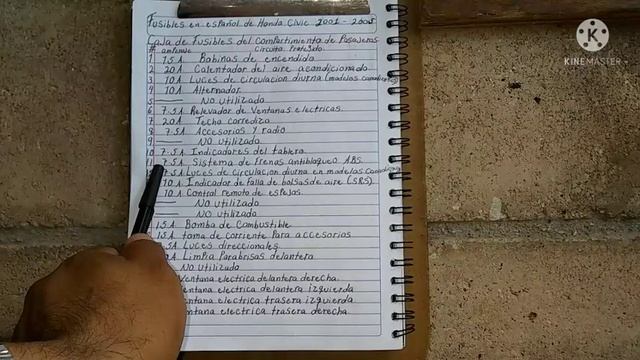 Fusibles en español de Honda Civic 2001 - 2005
Caja de Fusibles del Compartimiento de Pasajeros
# amperaje Circuito Protegido
1 15A Bobinas de encendido
2 20A Calentador del aire acondicionado
3 10A Luces de circulacion diurna (modelos canadienses)
4 10A Alternador
5 — NO utilizado
6 7.5A Relevador de Ventanas electricas
7 20A Techo corredizo
8 7.5A Accesorios y radio
9 — NO utilizado
10 7.5A Indicadores del tablero
11 7.5A Sistema de frenos antibloqueo ABS
7.5A Luces de circulacion diurna en modelos canadienses
10A Indicador de falla de bolsas de aire (SRS)
10A Control remoto de espejos
— NO utilizado
— NO utilizado
15A Bomba de Combustible
15A toma de corriente Para accesorios
5A Luces direccionales
A Limpia Parabrisas delantera
NO utilizado
Ventana electrica delantera derecha
entana electrica delantera izquierda
entana electrica trasera izquierda
ntana electrica trasera derecha
HECHO CON
KINEMASTER